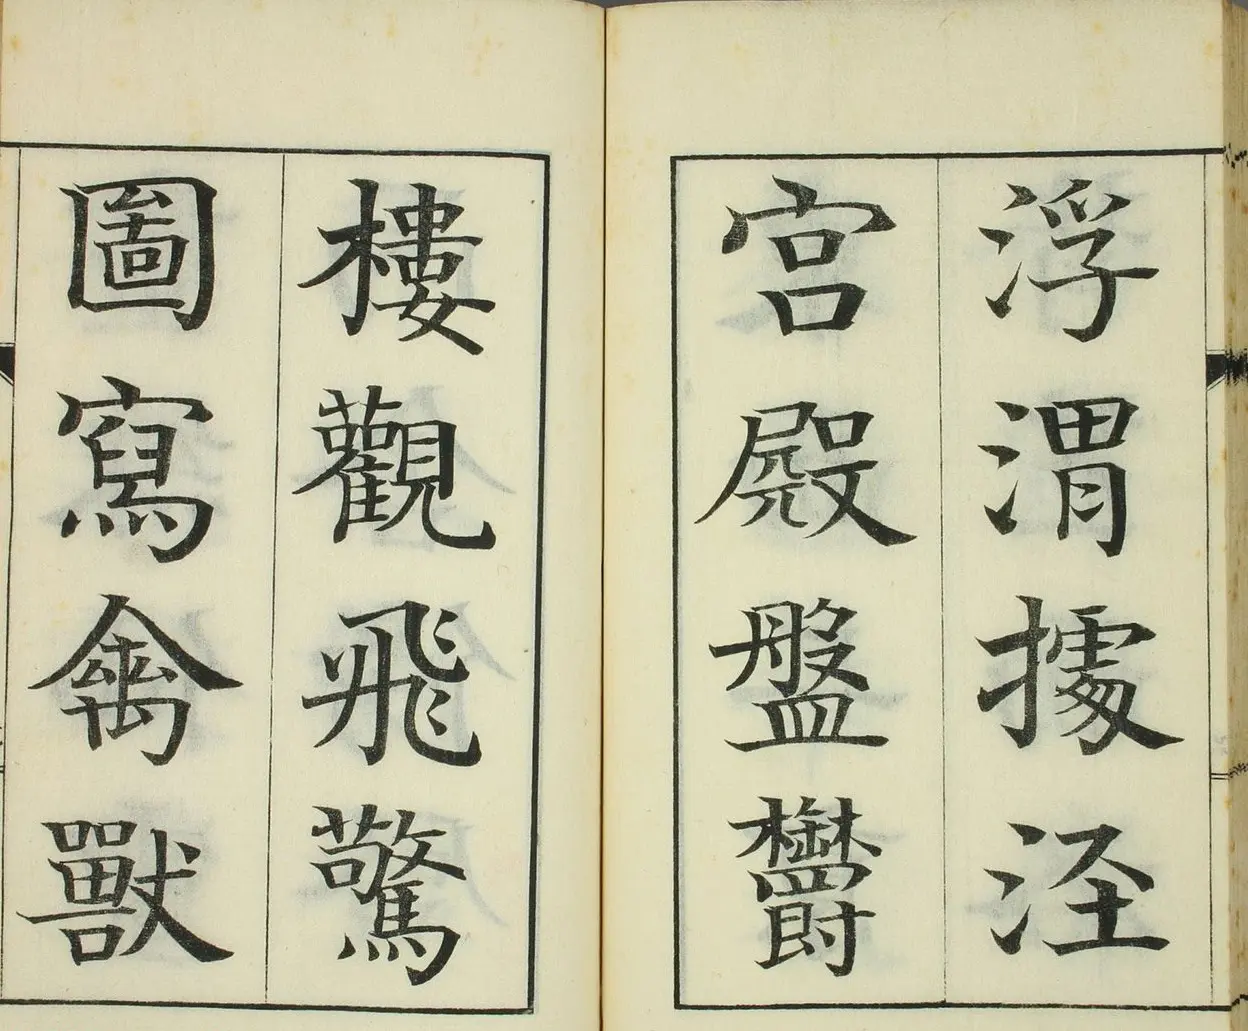 浮渭據涇
宮殿盤鬱
樓觀飛驚
圖寫禽獸